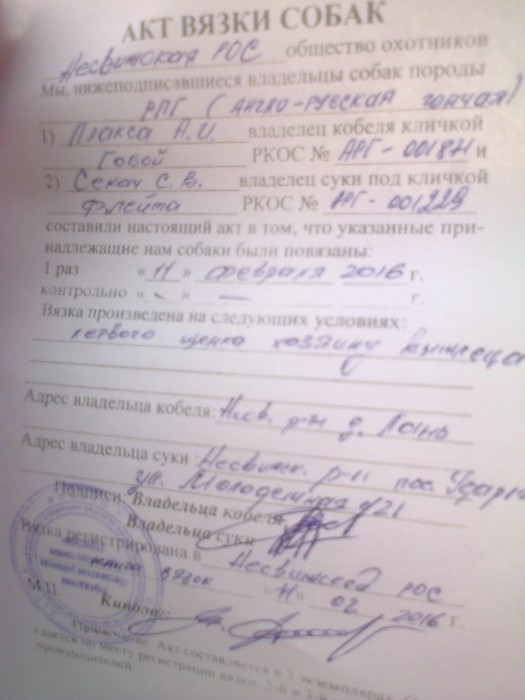 АКТ ВЯЗКИ СОБАК
Несвижская РОС общество охотников
Мы, нижеподписавшиеся владельцы собак породы
РПГ (Англо-русская гончая)
1) Плакса А.И. владелец кобеля кличкой
Гобой РКОС № АРГ-00187Н и
2) Секач С.В. владелец суки под кличкой
Флейта РКОС № АРГ-001229
составили настоящий акт в том, что указанные при-
надлежащие нам собаки были повязаны:
1 раз «11» февраля 2016 г.
контрольно « - » — г.
Вязка произведена на следующих условиях:
первого щенка хозяину
Адрес владельца кобеля: Несв. р-н д.
Адрес владельца суки: Несвижск. р-н пос.
ул. Молодежная д21
Подписи: Владельца кобеля
Владельца суки
Вязка регистрирована в Несвижской РОС
книга вязок «11» 02 2016 г.
М.П. Кинолог:
Примечание: Акт составляется в 3 экземплярах.
сдается по месту регистрации вязки, 2-й и 3-й
производителей.